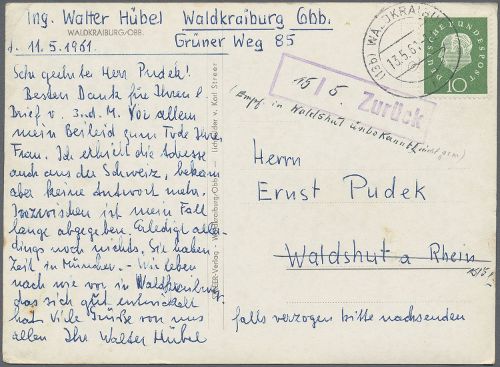 Ing. Walter Hübel Waldkraiburg Obb.
WALDKRAIBURG/OBB.
Grüner Weg 85
d. 11.5.1961
Sehr geehrter Herr Pudek!
Besten Dank für Ihren l.
Brief v. 3. d. M. Vor allem
mein Beileid zum Tode Ihrer
Frau. Ich erhielt die Adresse
auch aus der Schweiz, bekam
aber keine Antwort mehr.
Inzwischen ist mein Fall
lange abgegeben. Erledigt aller-
dings noch nichts. Sie haben
Zeit, in München. - Wir leben
nach wie vor in Waldkraiburg,
das sich gut entwickelt
hat. Viele Grüße von uns
allen Ihr Walter Hübel
STREER-Verlag - Waldkraiburg/Obb. - Lichtbilder v. Karl Streer
(13b) WALDKRAIBURG
13.5.61
DEUTSCHE BUNDESPOST
10
15/5.
Zurück
(Empf. in Waldshut unbekannt)
Herrn
Ernst Pudek
Waldshut a Rhein
falls verzogen bitte nachsenden